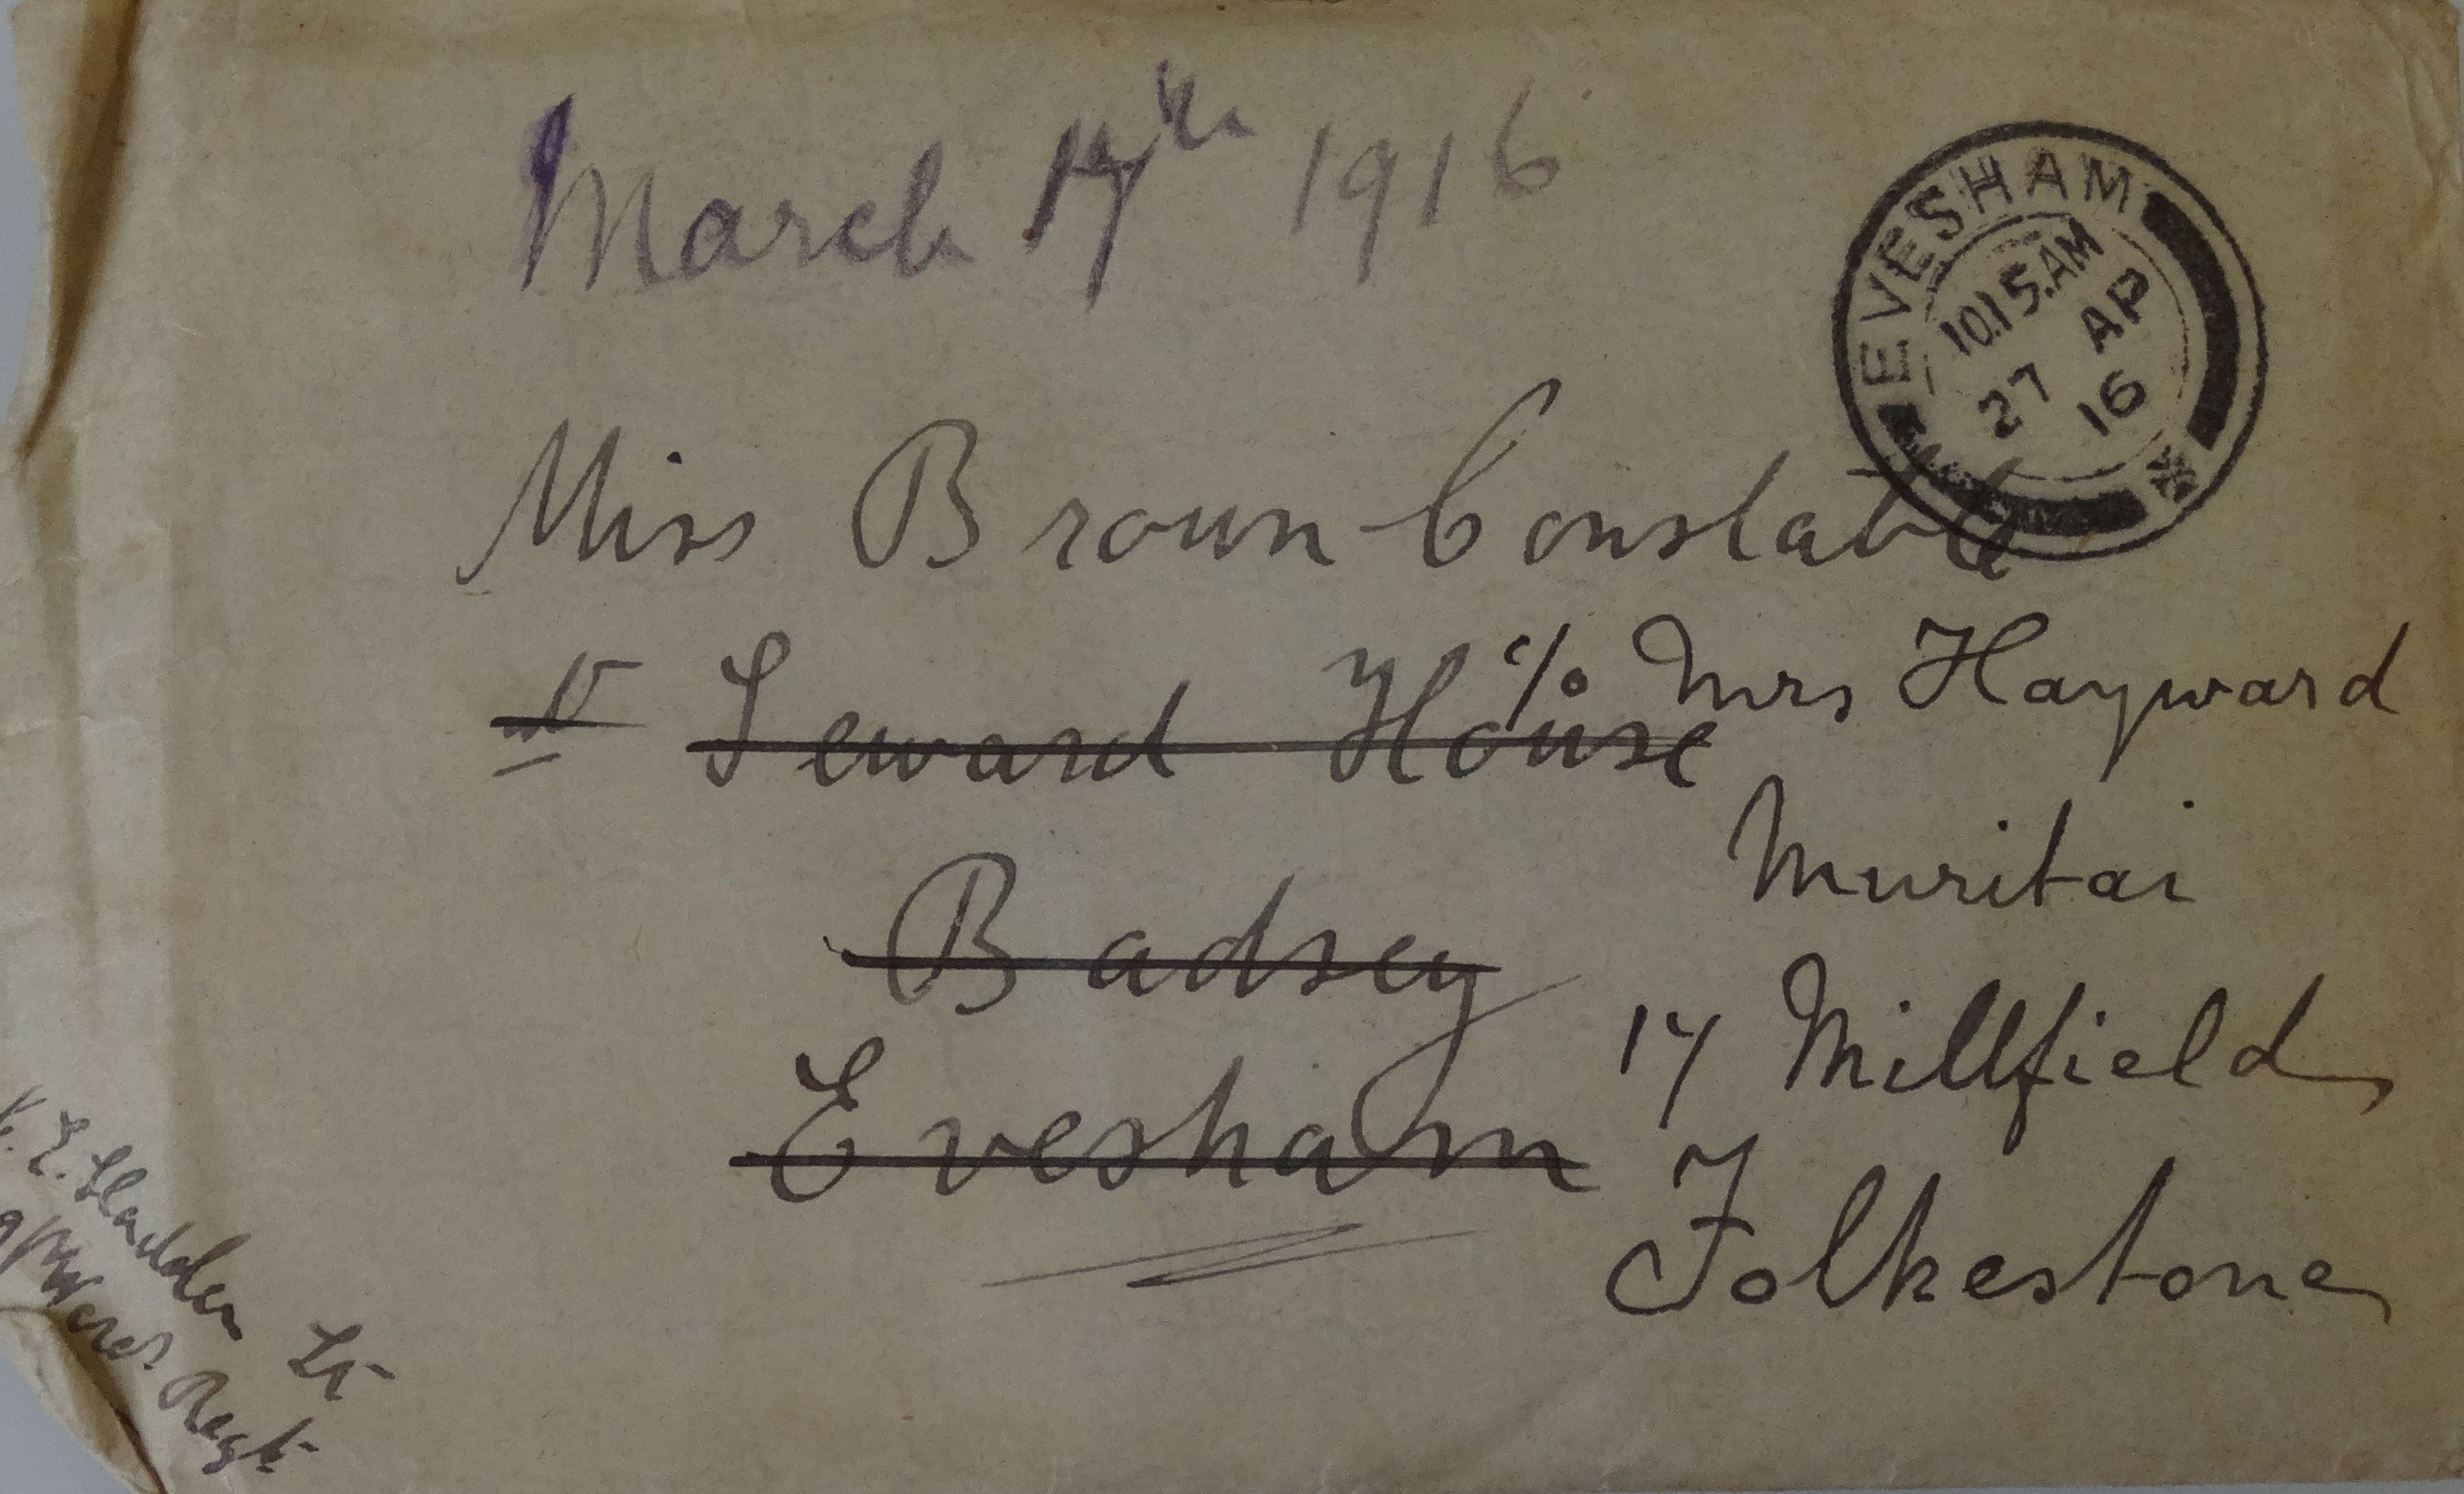 March 17th 1916
EVESHAM
10.15.AM
27 AP
16
Miss Broun-Constable
at Seward House
c/o Mrs Hayward
Muritai
Badsey
17 Millfield
Evesham
Folkestone
E. Sladden Lt
Regt